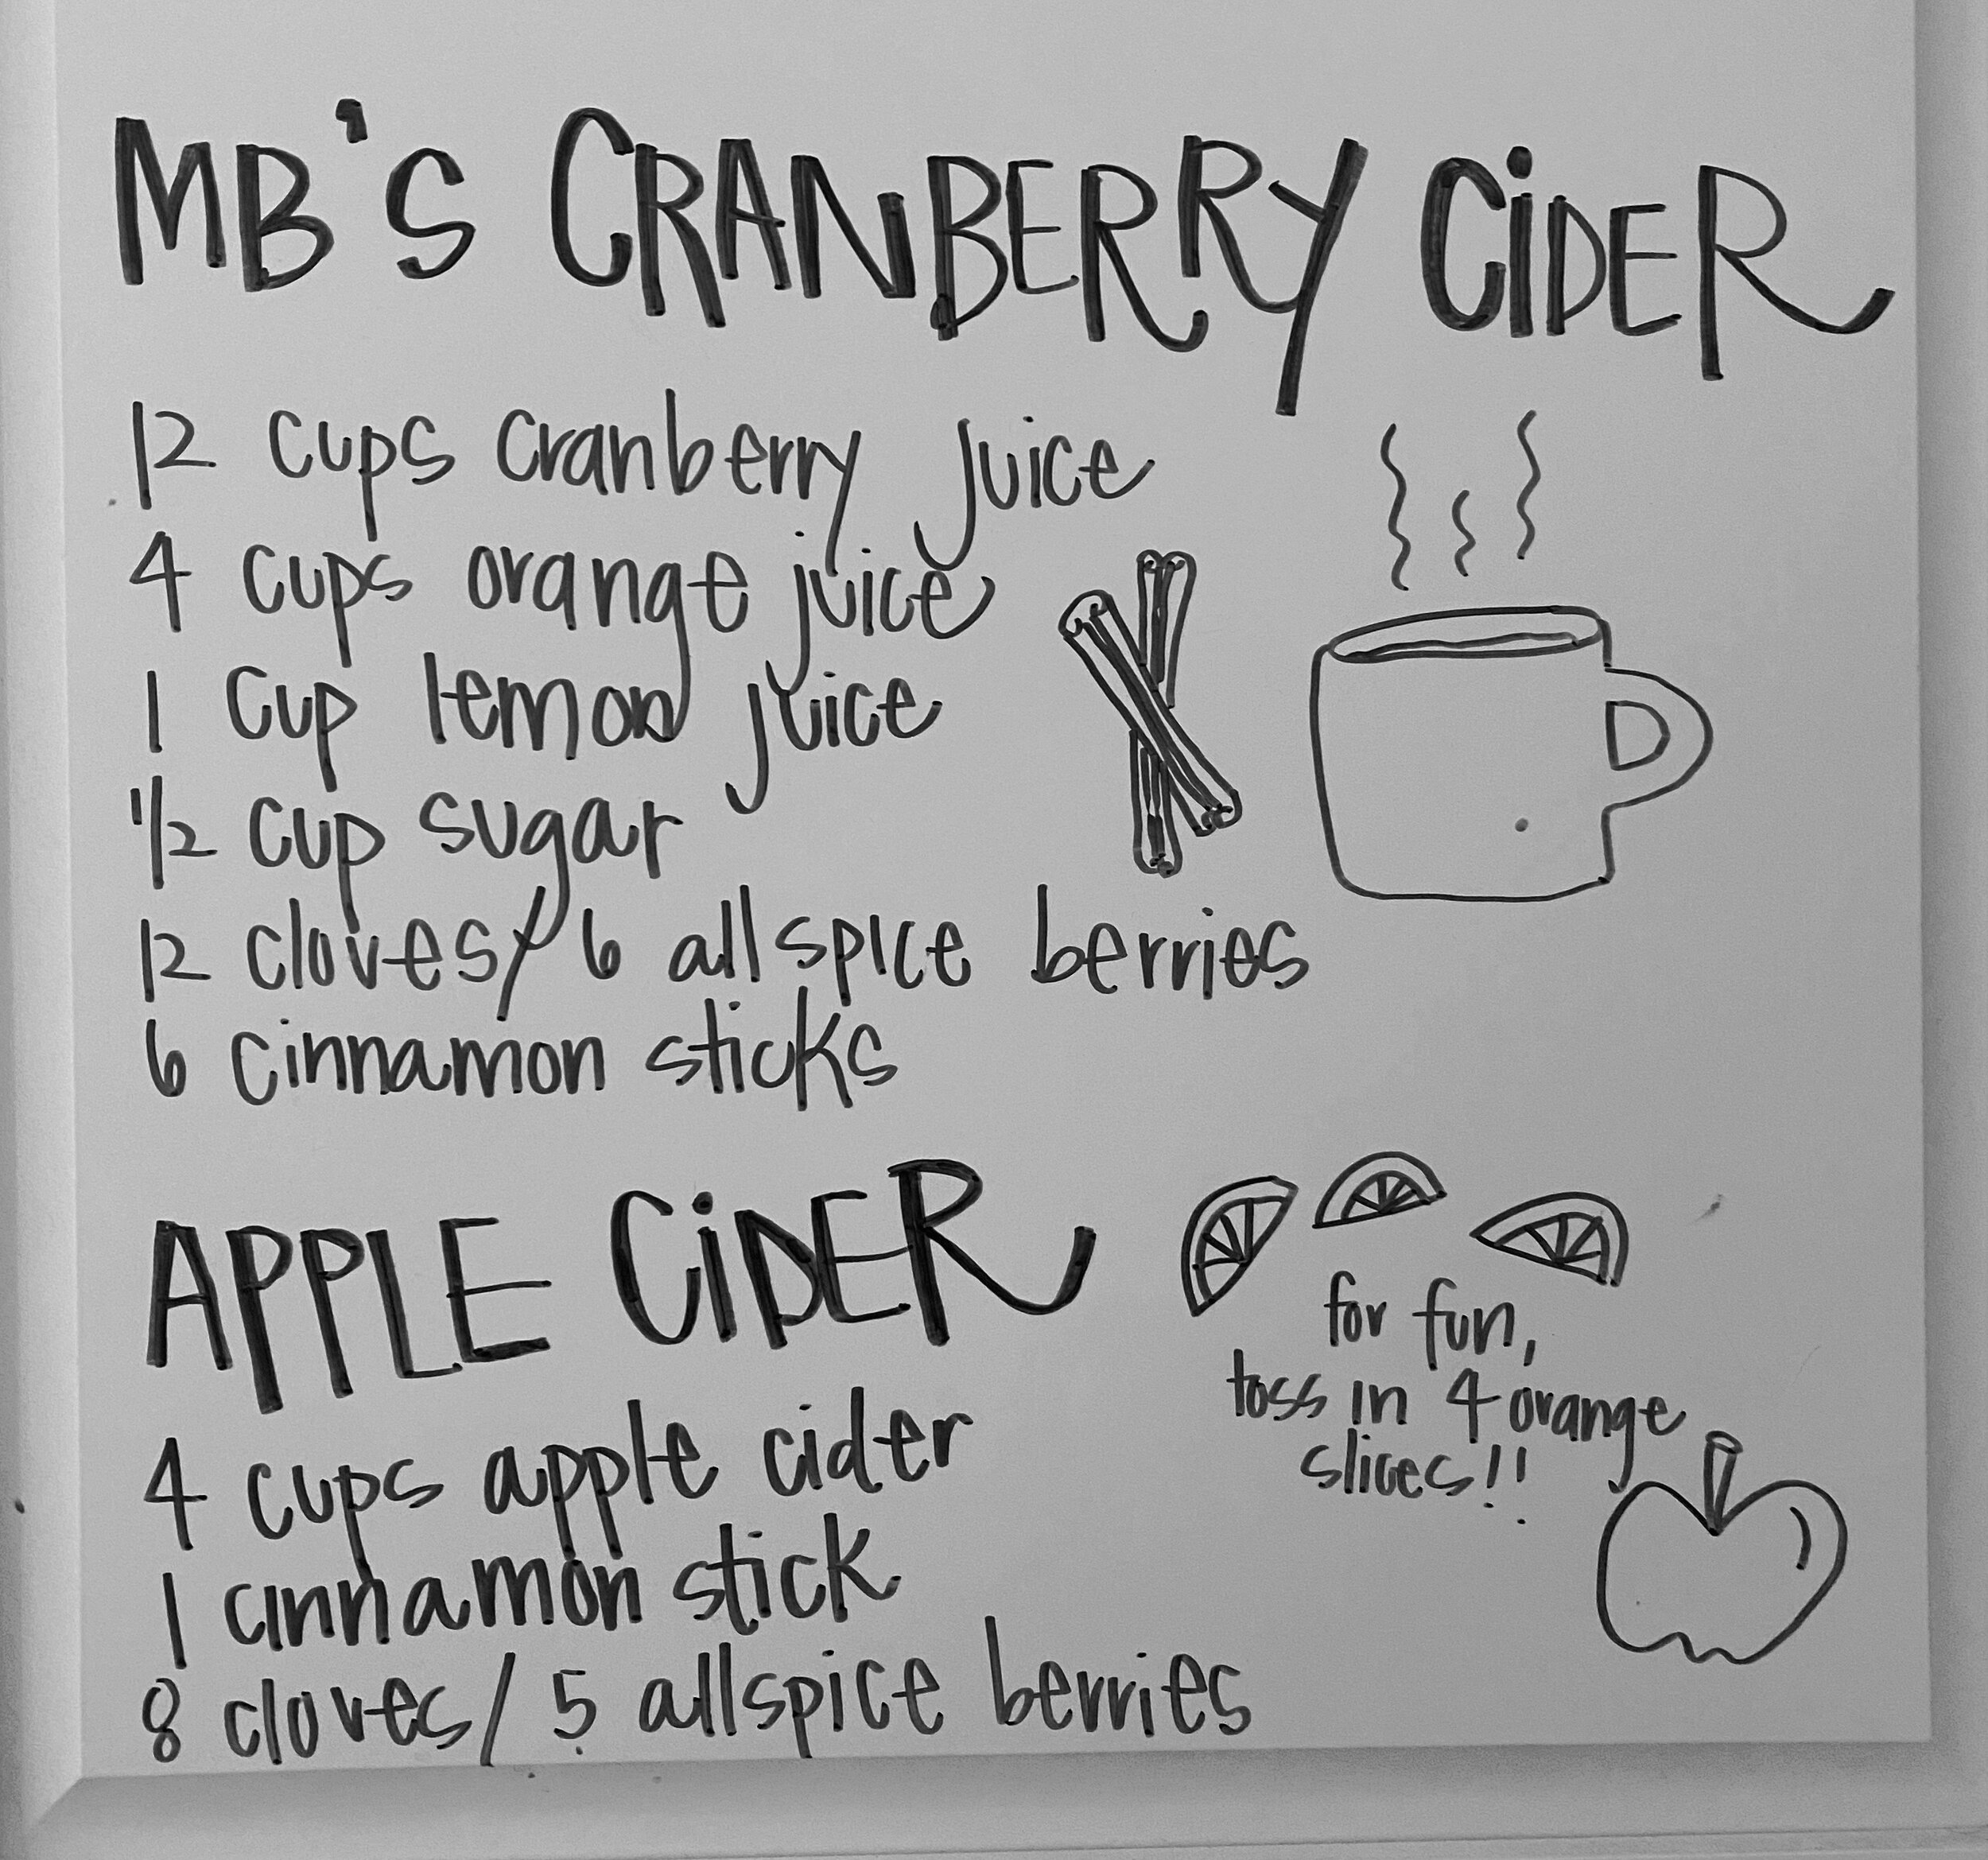 MB's CRANBERRY CiDER
12 cups cranberry juice
4 cups orange juice
1 cup lemon juice
1/2 cup sugar
12 cloves/ 6 allspice berries
6 cinnamon sticks
APPLE CiDER
4 cups apple cider
1 cinnamon stick
8 cloves/ 5 allspice berries
for fun,
toss in 4 orange
slices!!